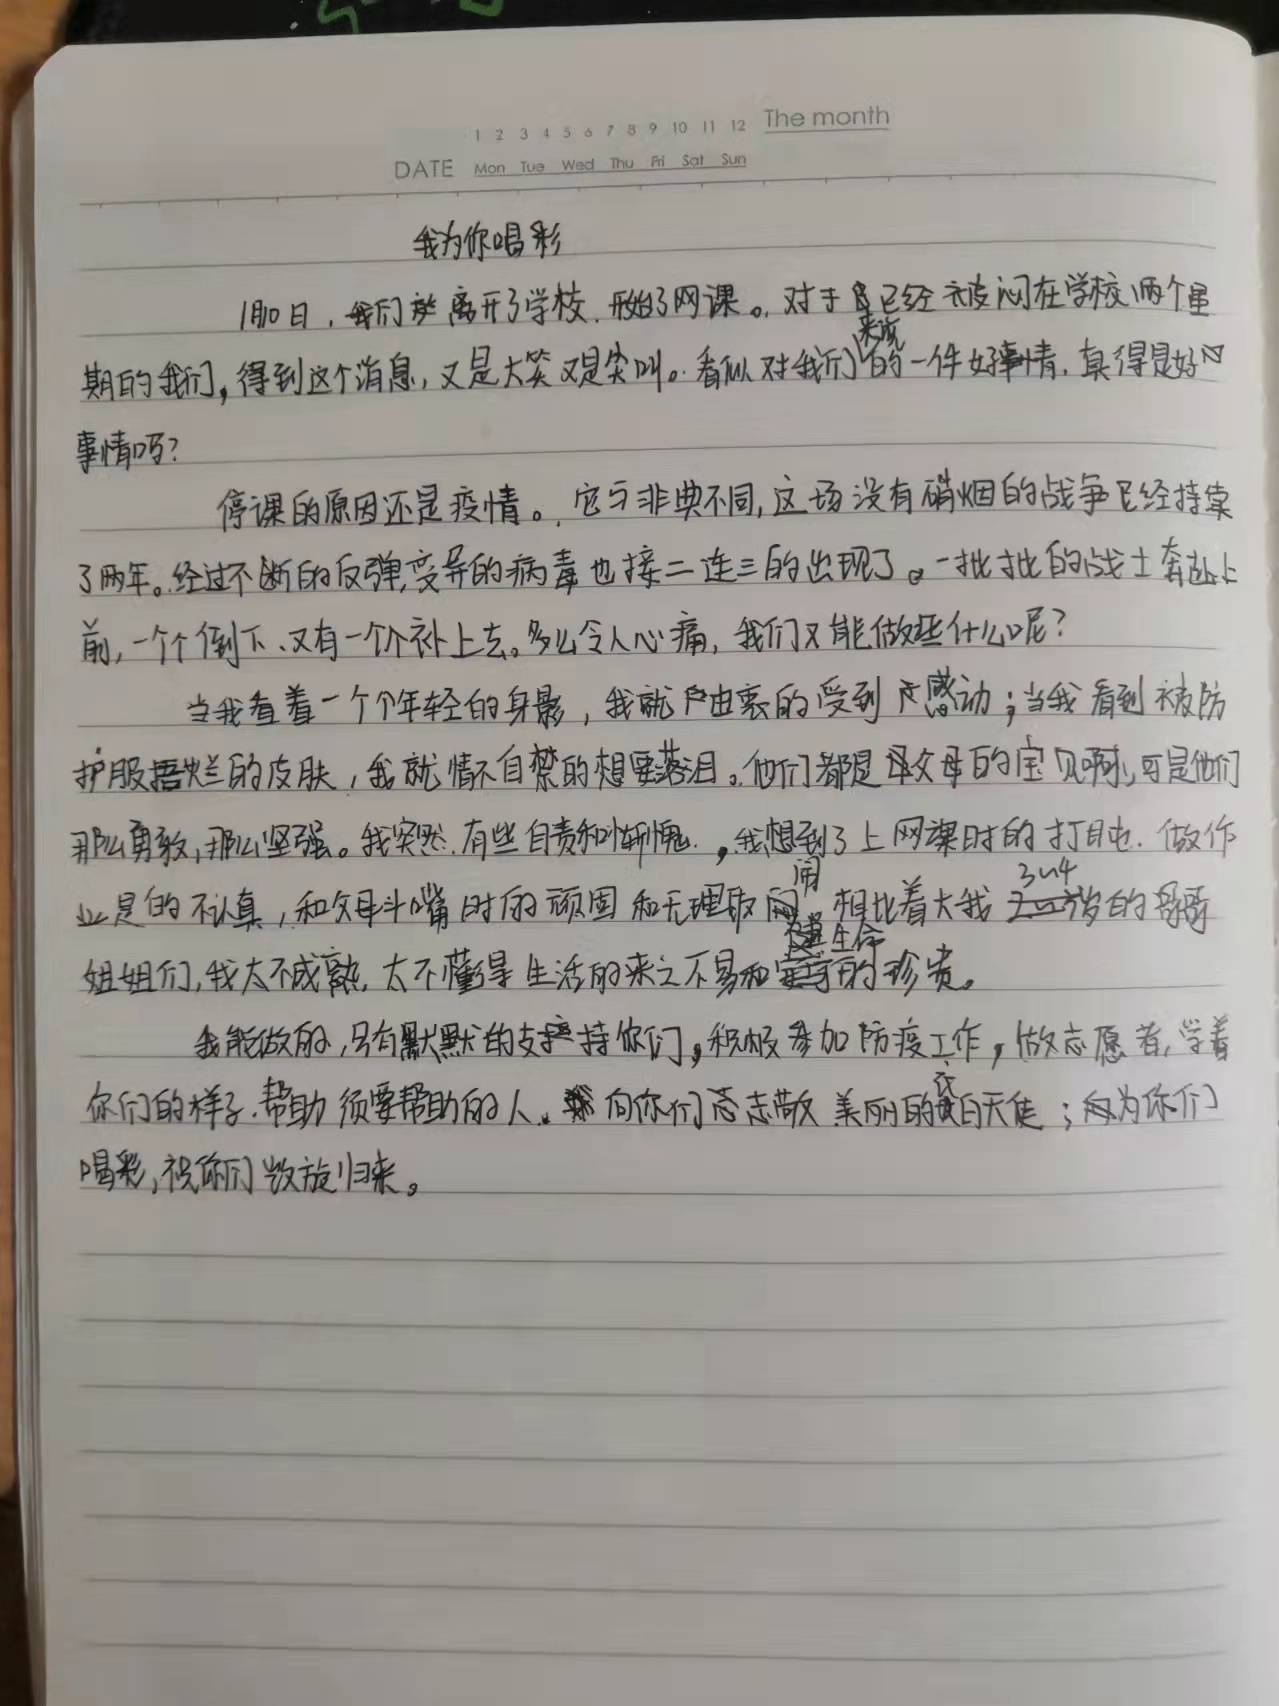 1 2 3 4 5 6 7 8 9 10 11 12 The month
DATE Mon Tue Wed Thu Fri Sat Sun
我为你唱彩
1月10日，我们离开了学校.开始了网课。对于已经被闷在学校两个星
期的我们，得到这个消息，又是大笑又是尖叫。看似对我们来说的一件好事情.真得是好
事情吗？
停课的原因还是疫情。它与非典不同，这场没有硝烟的战争已经持续
了两年。经过不断的反弹，变异的病毒也接二连三的出现了。一批批的战士奔赴上
前，一个个倒下、又有一个个补上去。多么令人心痛，我们又能做些什么呢？
当我看着一个个年轻的身影，我就由衷的受到感动；当我看到被防
护服捂烂的皮肤，我就情不自禁的想要落泪。他们都是父母的宝贝啊，可是他们
那么勇敢，那么坚强。我突然有些自责和惭愧，我想到了上网课时的打盹.做作
业是的不认真，和父母斗嘴时的顽固和无理取闹 相比着大我3~4岁的哥哥
姐姐们，我太不成熟.太不懂得生活的来之不易和生命的珍贵。
我能做的，只有默默的支持你们，积极参加防疫工作，做志愿者，学着
你们的样子.帮助须要帮助的人。向你们致敬 美丽的白衣天使；为你们
唱彩，祝你们凯旋归来。